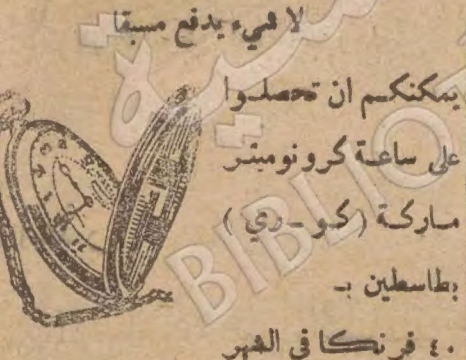 لا شيء يدفع مسبقا
يمكنكم ان تحصلوا
على ساعة كرونوميتر
ماركة ( كو - ري )
بطاسطين بـ
٤٠ فرنكا في الشهر
BIBLIO